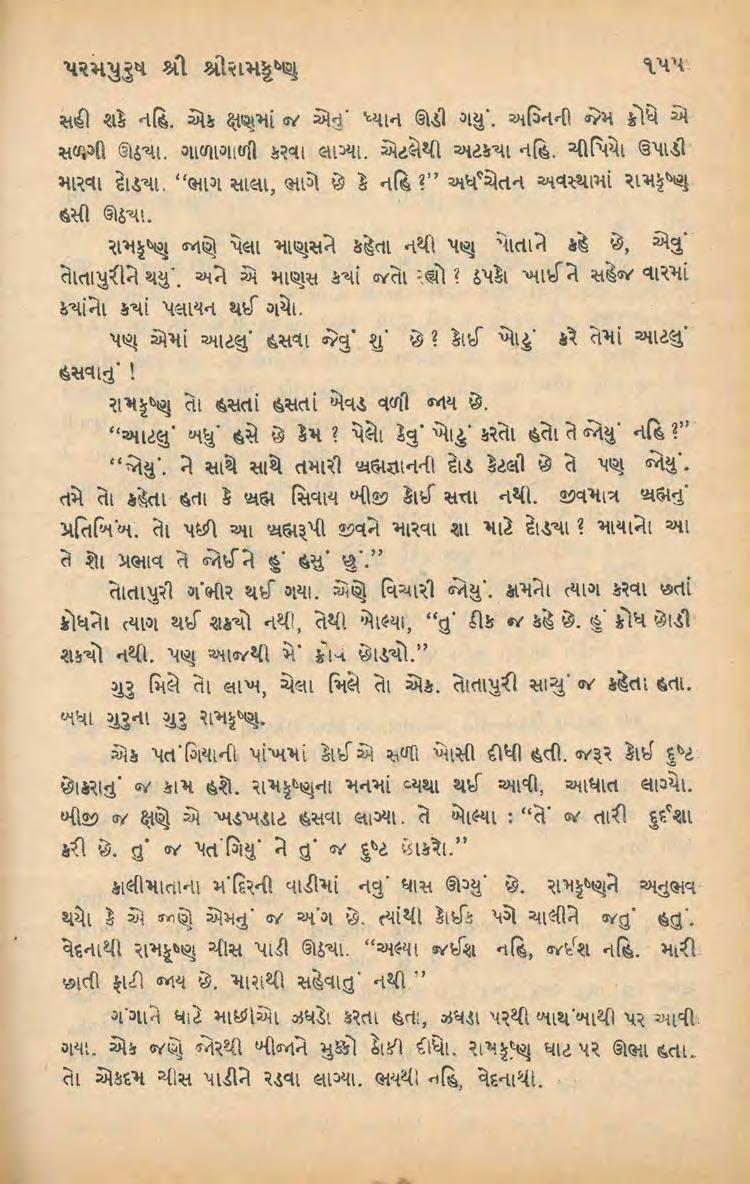 પરમપુરુષ શ્રી શ્રીરામકૃષ્ણ ૧૫૫
સહી શકે નહિ. એક ક્ષણમાં જ એનું ધ્યાન ઊડી ગયું. અગ્નિની જેમ ક્રોધે એ
સળગી ઊઠ્યા. ગાળાગાળી કરવા લાગ્યા. એટલેથી અટકયા નહિ. ચીપિયો ઉપાડી
મારવા દોડ્યા. “ભાગ સાલા, ભાગે છે કે નહિ ?” અર્ધચેતન અવસ્થામાં રામકૃષ્ણ
હસી ઊઠ્યા.
રામકૃષ્ણ જાણે પેલા માણસને કહેતા નથી પણ પોતાને કહે છે, એવું
તોતાપુરીને થયું. અને એ માણસ કયાં જતો રહ્યો ? ઠપકો ખાઈને સહેજ વારમાં
કયાંનો કયાં પલાયન થઈ ગયો.
પણ એમાં આટલું હસવા જેવું શું છે ? કોઈ ખોટું કરે તેમાં આટલું
હસવાનું !
રામકૃષ્ણ તો હસતાં હસતાં બેવડ વળી જાય છે.
“આટલું બધું હસે છે કેમ ? પેલો કેવું ખોટું કરતો હતો તે જોયું નહિ ?”
“જોયું. ને સાથે સાથે તમારી બ્રહ્મજ્ઞાનની દોડ કેટલી છે તે પણ જોયું.
તમે તો કહેતા હતા કે બ્રહ્મ સિવાય બીજી કોઈ સત્તા નથી. જીવમાત્ર બ્રહ્મનું
પ્રતિબિંબ. તો પછી આ બ્રહ્મરૂપી જીવને મારવા શા માટે દોડ્યા ? માયાનો આ
તે શો પ્રભાવ તે જોઈને હું હસું છું.”
તોતાપુરી ગંભીર થઈ ગયા. એણે વિચારી જોયું. કામનો ત્યાગ કરવા છતાં
ક્રોધનો ત્યાગ થઈ શકયો નથી, તેથી બોલ્યા, “તું ઠીક જ કહે છે. હું ક્રોધ છોડી
શકયો નથી. પણ આજથી મેં ક્રોધ છોડ્યો.”
ગુરુ મિલે તો લાખ, ચેલા મિલે તો એક. તોતાપુરી સાચું જ કહેતા હતા.
બધા ગુરુના ગુરુ રામકૃષ્ણ.
એક પતંગિયાની પાંખમાં કોઈએ સળી ખોસી દીધી હતી. જરૂર કોઈ દુષ્ટ
છોકરાનું જ કામ હશે. રામકૃષ્ણના મનમાં વ્યથા થઈ આવી, આઘાત લાગ્યો.
બીજી જ ક્ષણે એ ખડખડાટ હસવા લાગ્યા. તે બોલ્યા : “તેં જ તારી દુર્દશા
કરી છે. તું જ પતંગિયું ને તું જ દુષ્ટ છોકરો.”
કાલીમાતાના મંદિરની વાડીમાં નવું ઘાસ ઊગ્યું છે. રામકૃષ્ણને અનુભવ
થયો કે એ જાણે એમનું જ અંગ છે. ત્યાંથી કોઈક પગે ચાલીને જતું હતું.
વેદનાથી રામકૃષ્ણ ચીસ પાડી ઊઠ્યા. “અલ્યા જઈશ નહિ, જઈશ નહિ. મારી
છાતી ફાટી જાય છે. મારાથી સહેવાતું નથી ”
ગંગાને ઘાટે માછીઓ ઝઘડો કરતા હતા, ઝઘડા પરથી બાથંબાથી પર આવી
ગયા. એક જણે જોરથી બીજાને મુક્કો ઠોકી દીધો. રામકૃષ્ણ ઘાટ પર ઊભા હતા.
તો એકદમ ચીસ પાડીને રડવા લાગ્યા. ભયથી નહિ, વેદનાથી.